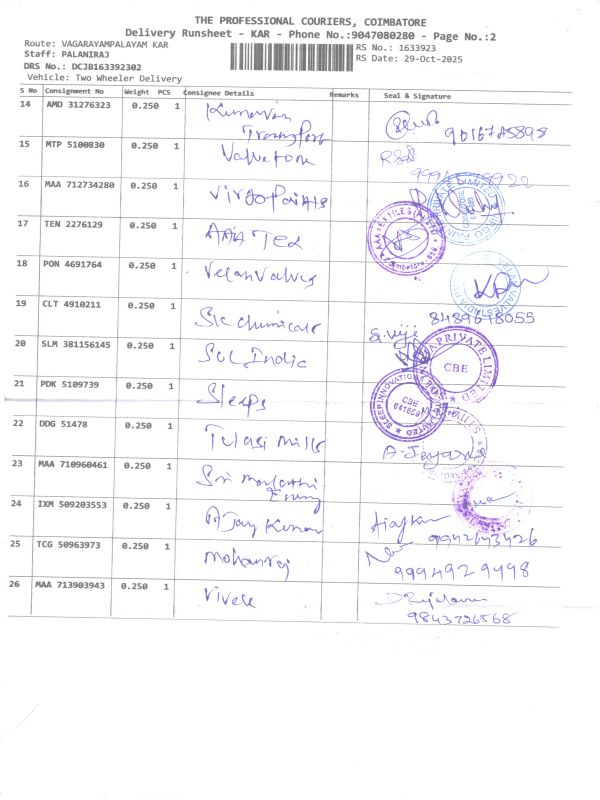 THE PROFESSIONAL COURIERS, COIMBATORE
Delivery Runsheet - KAR - Phone No.:9047080280 - Page No.:2
Route: VAGARAYAMPALAYAM KAR
RS No.: 1633923
Staff: PALANIRAJ
RS Date: 29-Oct-2025
DRS No.: DCJB163392302
Vehicle: Two Wheeler Delivery
S No Consignment No Weight PCS Consignee Details Remarks Seal & Signature
14 AMD 31276323 0.250 1 Kumaran
Transport
15 MTP 5100830 0.250 1 Valvetone
16 MAA 712734280 0.250 1 Virgo Paints
17 TEN 2276129 0.250 1 AAA Tex
18 PON 4691764 0.250 1 Velan Valves
19 CLT 4910211 0.250 1 Sie chemicals 8489678055
20 SLM 381156145 0.250 1 India
CBE
21 PDK 5109739 0.250 1 Sleeps
CBE
22 DDG 51478 0.250 1 Tulasi mills
23 MAA 710960461 0.250 1 Sri
24 IXM 509203553 0.250 1 Ajay Kumar
9942643426
25 TCG 50963973 0.250 1 mohanraj
9994929498
26 MAA 713903943 0.250 1
9843726568